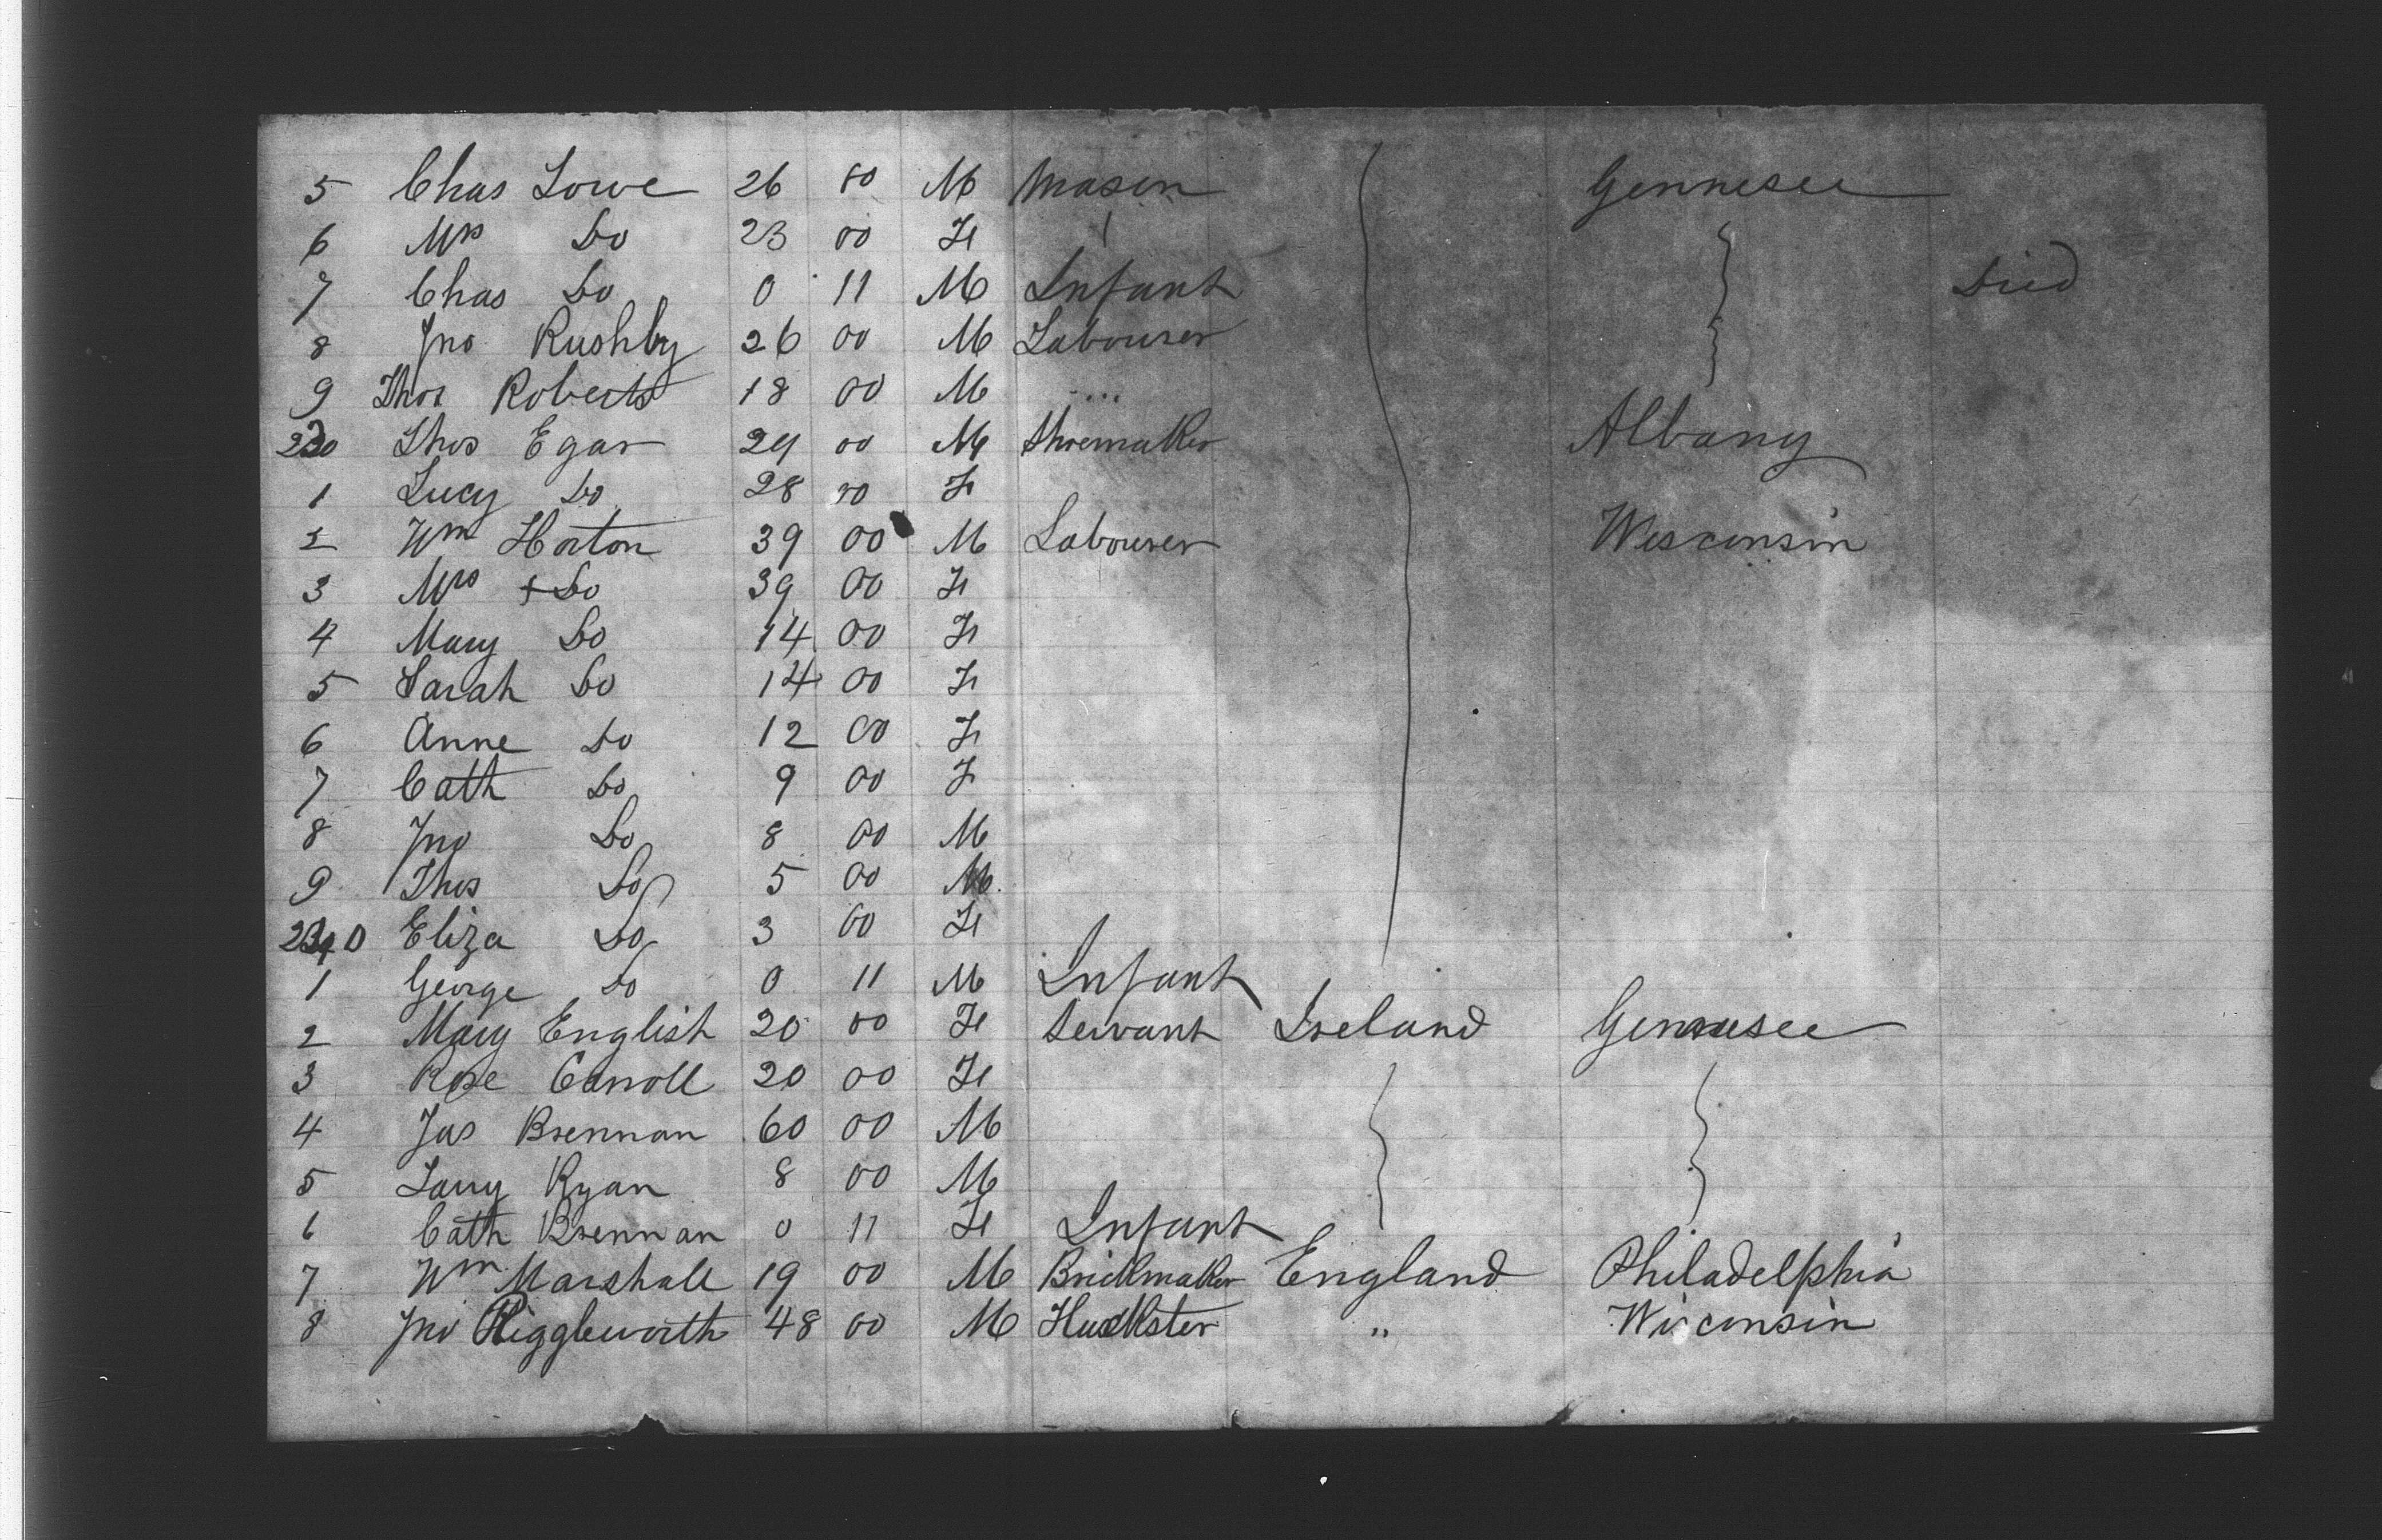 5 Chas Lowe 26 00 M Mason Gennesee
6 Mrs Do 23 00 F
7 Chas Do 0 11 M Infant Died
8 Jno Rushby 26 00 M Labourer
9 Thos Roberts 18 00 M ....
230 Thos Egar 29 00 M Shoemaker Albany
1 Lucy Do 28 00 F
2 Wm Horton 39 00 M Labourer Wisconsin
3 Mrs + Do 39 00 F
4 Mary Do 14 00 F
5 Sarah Do 14 00 F
6 Anne Do 12 00 F
7 Cath Do 9 00 F
8 Jno Do 8 00 M
9 Thos Do 5 00 M
240 Eliza Do 3 00 F
1 George Do 0 11 M Infant
2 Mary English 20 00 F Servant Ireland Gennesee
3 Rose Carroll 20 00 F
4 Jas Brennan 60 00 M
5 Larry Ryan 8 00 M
6 Cath Brennan 0 11 F Infant
7 Wm Marshall 19 00 M Brickmaker England Philadelphia
8 Jno Higgleworth 48 00 M Huckster " Wisconsin